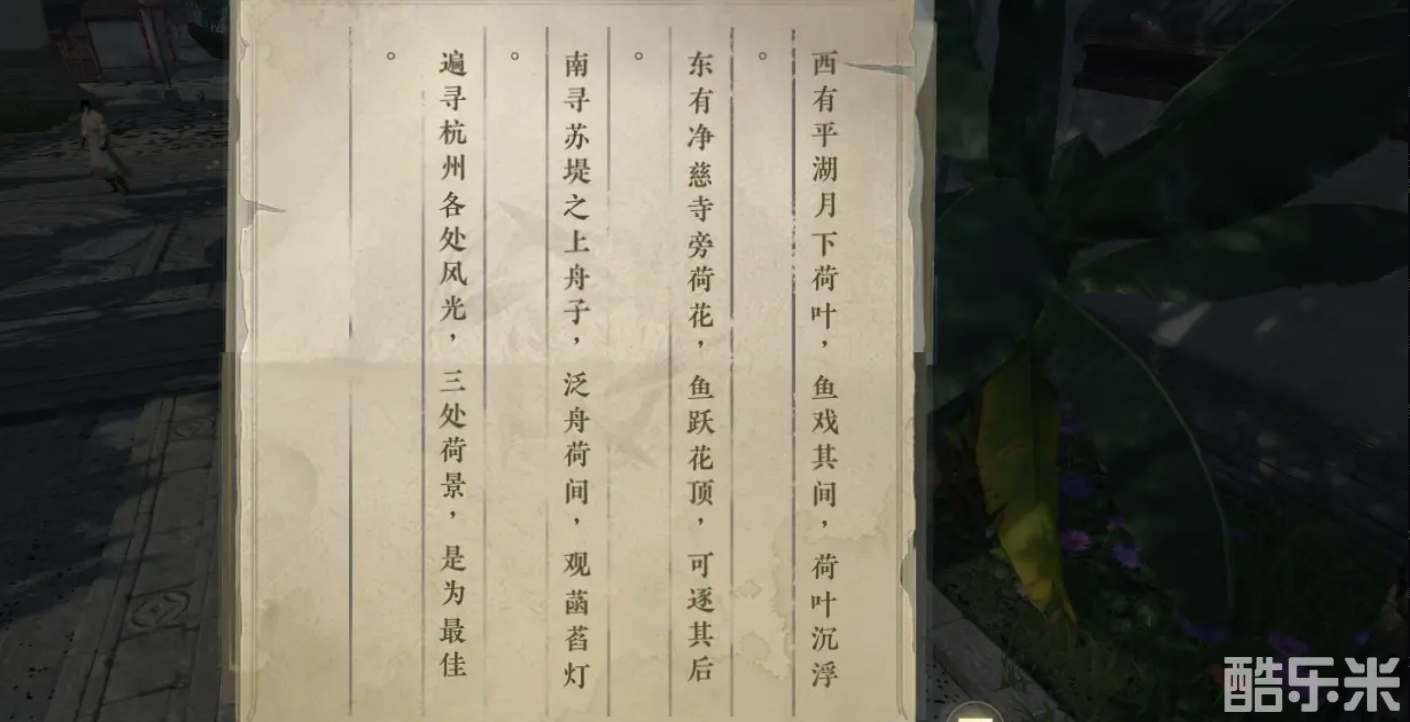 西有平湖月下荷叶，鱼戏其间，荷叶沉浮
。
东有净慈寺旁荷花，鱼跃花顶，可逐其后
。
南寻苏堤之上舟子，泛舟荷间，观菡萏灯
。
遍寻杭州各处风光，三处荷景，是为最佳
。
酷乐米